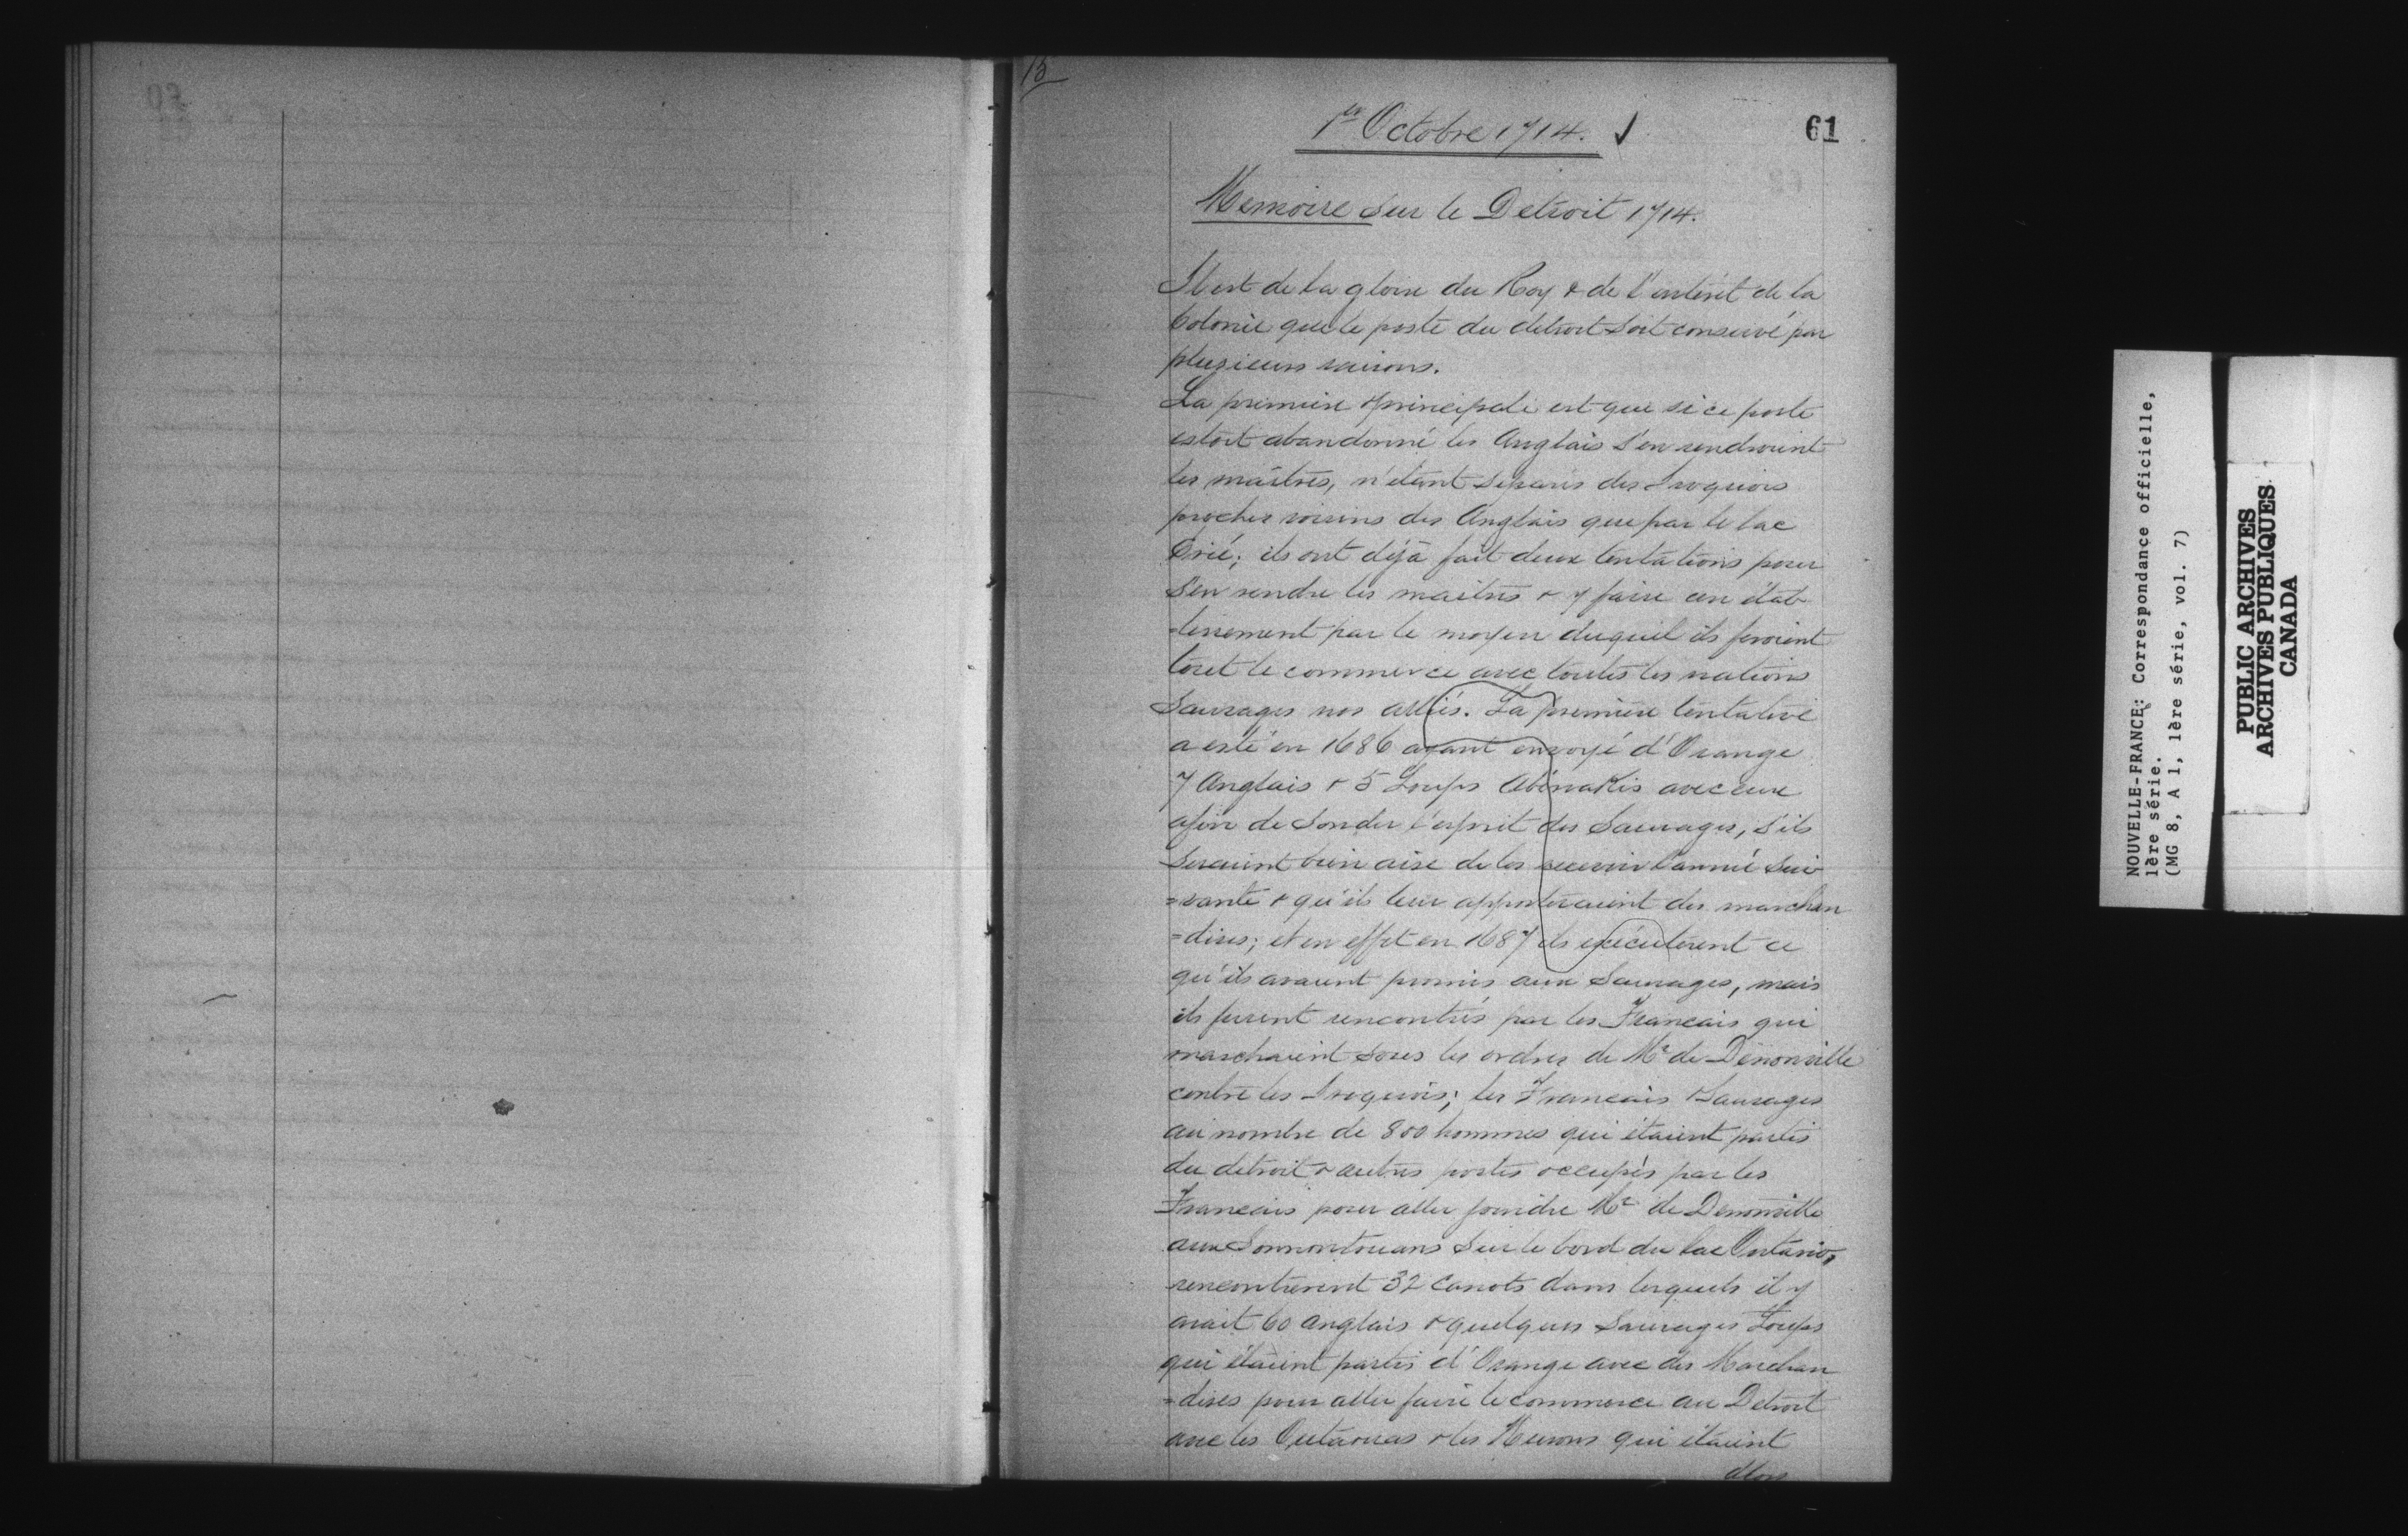 13
1er Octobre 1714.
61
Memoire sur le Detroit 1714.
Il est de la gloire du Roy & de l'intérêt de la
Colonie que le poste du detroit soit conservé par
plusieurs raisons.
La premiere & principale est que si ce poste
estoit abandonné les Anglais s'en rendroient
les maîtres, n'étant séparés des Iroquois
proches voisins des Anglais que par le lac
Erié; ils ont déjà fait deux tentations pour
s'en rendre les maîtres & y faire un étab
=lissement par le moyen duquel ils feroient
tout le commerce avec toutes les nations
Sauvages nos alliés. La première tentative
a esté en 1686 ayant envoyé d'Orange
7 Anglais & 5 Loups Abénakis avec eux
afin de sonder l'esprit des Sauvages, s'ils
seraient bien aise de les recevoir l'année sui
=vante & qu'ils leur apporteraient des marchan
=dises; et en effet en 1687 ils exécuterent ce
qu'ils avaient promis aux Sauvages, mais
ils furent rencontrés par les Francais qui
marchaient sous les ordres de Mr de Denonville
contre les Iroquois; les Francais & Sauvages
au nombre de 800 hommes qui étaient partis
du détroit & autres postes occupés par les
Francais pour aller joindre Mr de Denonville
aux Sonnontouans sur le bord du lac Ontario,
rencontrerent 32 canots dans lesquels il y
avait 60 anglais & quelques Sauvages Loups
qui étaient partis d'Orange avec des Marchan
=dises pour aller faire le commerce au Detroit
avec les Outaouas & les Hurons qui étaient
alors
NOUVELLE-FRANCE: Correspondance officielle,
1ère série.
(MG 8, A 1, 1ère série, vol. 7)
PUBLIC ARCHIVES
ARCHIVES PUBLIQUES
CANADA